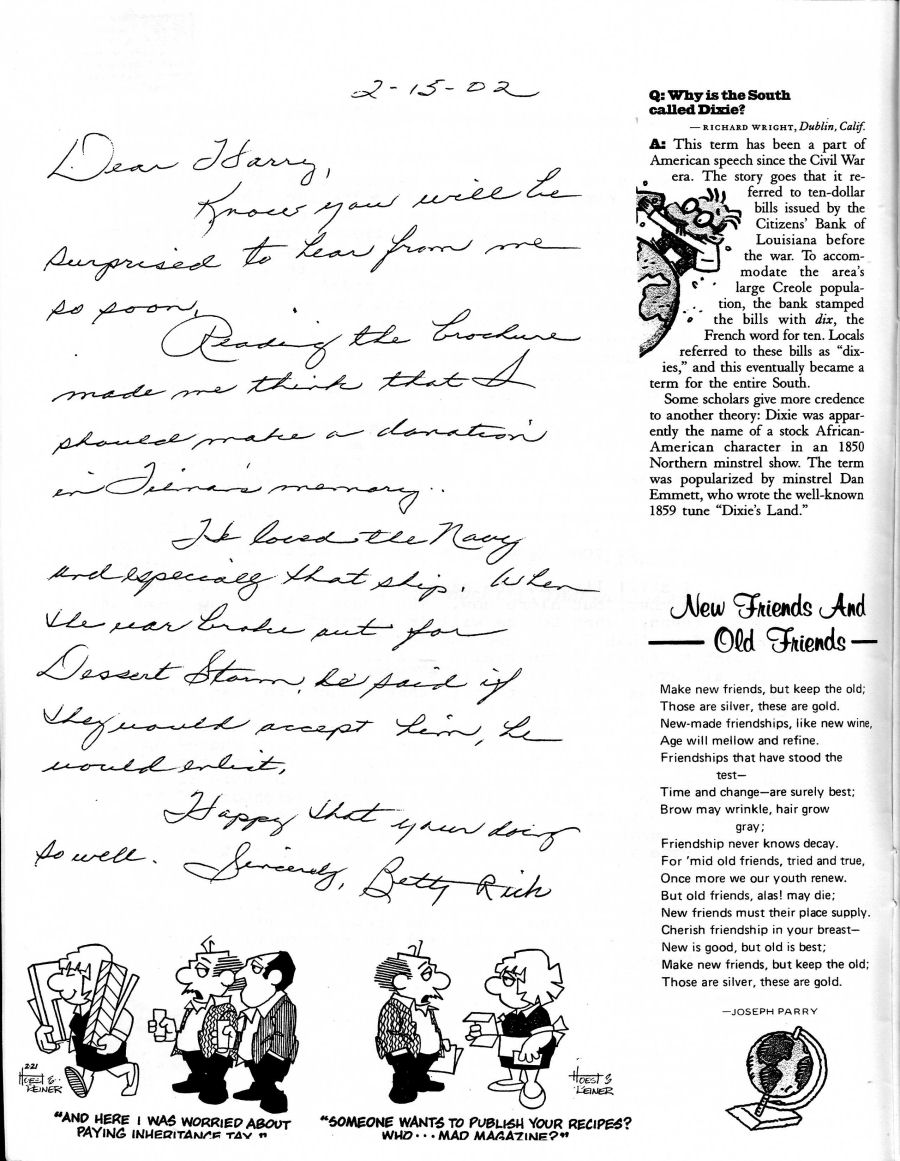 2-15-02
Dear Harry,
Know you will be
surprised to hear from me
so soon.
Reading the brochure
made me think that I
should make a donation
in memory..
He loved the Navy
and especially that ship. When
the war broke out for
Dessert Storm, he said if
they would accept him, he
would enlist.
Happy that your doing
so well. Sincerely, Betty Rich
Q: Why is the South
called Dixie?
— RICHARD WRIGHT, Dublin, Calif.
A: This term has been a part of
American speech since the Civil War
era. The story goes that it re-
ferred to ten-dollar
bills issued by the
Citizens' Bank of
Louisiana before
the war. To accom-
modate the area's
large Creole popula-
tion, the bank stamped
the bills with dix, the
French word for ten. Locals
referred to these bills as "dix-
ies," and this eventually became a
term for the entire South.
Some scholars give more credence
to another theory: Dixie was appar-
ently the name of a stock African-
American character in an 1850
Northern minstrel show. The term
was popularized by minstrel Dan
Emmett, who wrote the well-known
1859 tune "Dixie's Land."
New Friends And
Old Friends
Make new friends, but keep the old;
Those are silver, these are gold.
New-made friendships, like new wine,
Age will mellow and refine.
Friendships that have stood the
test—
Time and change—are surely best;
Brow may wrinkle, hair grow
gray;
Friendship never knows decay.
For 'mid old friends, tried and true,
Once more we our youth renew.
But old friends, alas! may die;
New friends must their place supply.
Cherish friendship in your breast—
New is good, but old is best;
Make new friends, but keep the old;
Those are silver, these are gold.
—JOSEPH PARRY
2-21
HOEST &
REINER
"AND HERE I WAS WORRIED ABOUT
PAYING INHERITANCE TAX "
HOEST &
REINER
"SOMEONE WANTS TO PUBLISH YOUR RECIPES?
WHO...MAD MAGAZINE?"